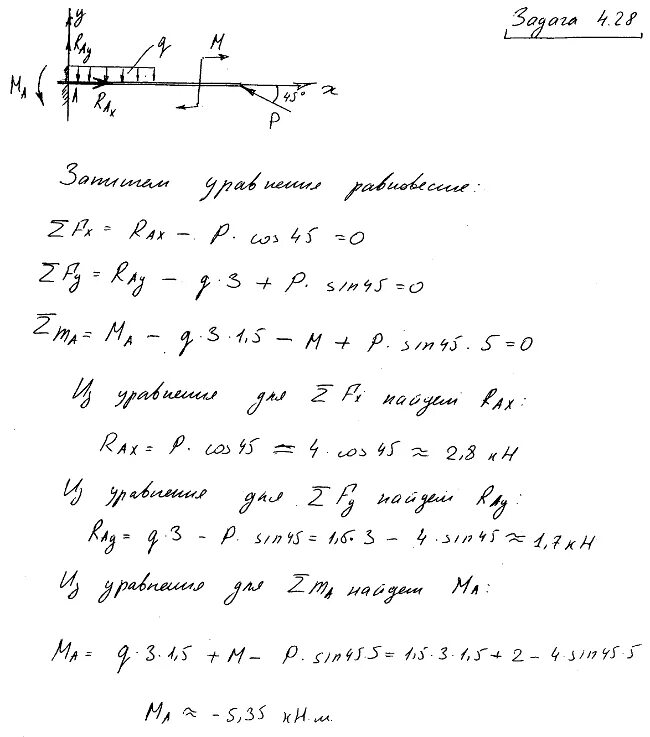 Задача 4.28
y
R_Ay
q
M
M_A
A
R_Ax
45°
x
P
Запишем уравнения равновесие:
ΣF_x = R_Ax − P · cos 45 = 0
ΣF_y = R_Ay − q · 3 + P · sin45 = 0
Σm_A = M_A − q · 3 · 1,5 − M + P · sin45 · 5 = 0
Из уравнения для ΣF_x найдем R_Ax:
R_Ax = P · cos45 = 4 · cos45 ≈ 2,8 кН
Из уравнения для ΣF_y найдем R_Ay:
R_Ay = q · 3 − P · sin45 = 1,5 · 3 − 4 · sin45 ≈ 1,7 кН
Из уравнения для Σm_A найдем M_A:
M_A = q · 3 · 1,5 + M − P · sin45·5 = 1,5 · 3 · 1,5 + 2 − 4 · sin45 · 5
M_A ≈ −5,35 кН·м.